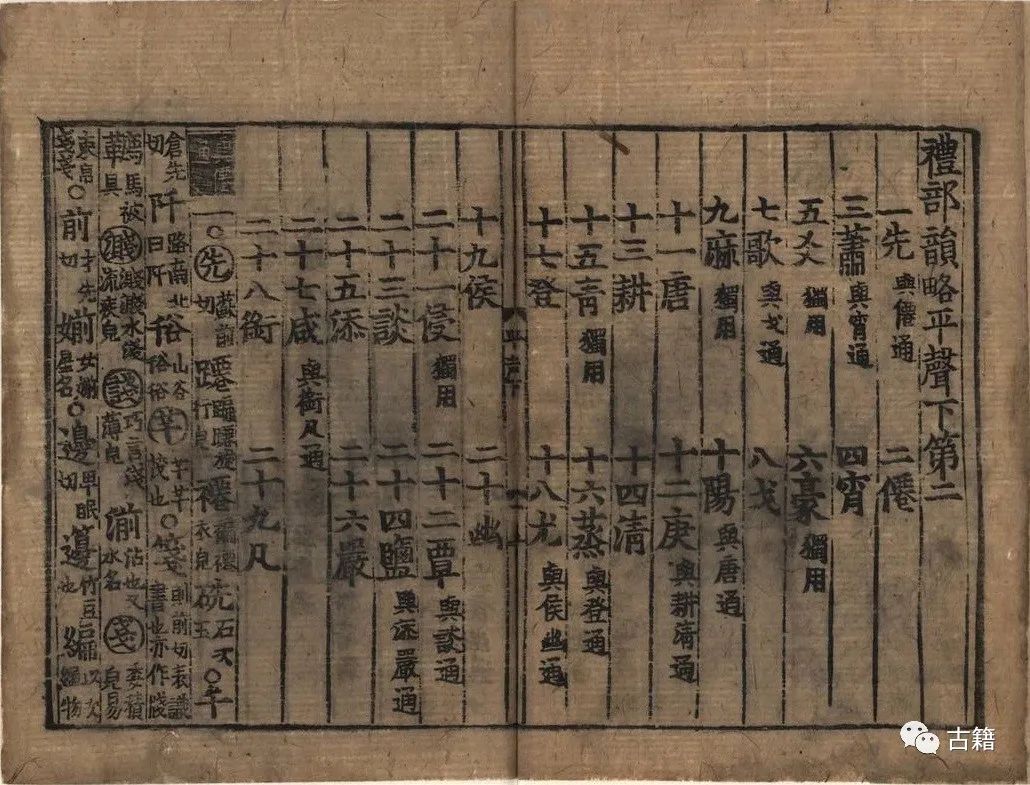 禮部韻略平聲下第二
一先與僊通 二僊
三蕭與宵通 四宵
五爻獨用 六豪獨用
七歌與戈通 八戈
九麻獨用 十陽與唐通
十一唐 十二庚與耕清通
十三耕 十四清
十五青獨用 十六蒸與登通
十七登 十八尤與侯幽通
十九侯 二十幽
二十一侵獨用 二十二覃與談通
二十三談 二十四鹽與添嚴通
二十五添 二十六嚴
二十七咸與銜凡通
二十八銜 二十九凡
一○先蘇前切 躚 行皃 衣皃 硑石次玉○千
倉先切 阡路南北曰阡 山谷 芊 茂也○箋則前切表識書也亦作牋
馬被具 淺水疾皃 諓巧言 薄皃 湔 水名 戔委積皃易
束帛戔戔○前才先切 媊女 星名○邊卑眠切 籩竹豆 也
古籍